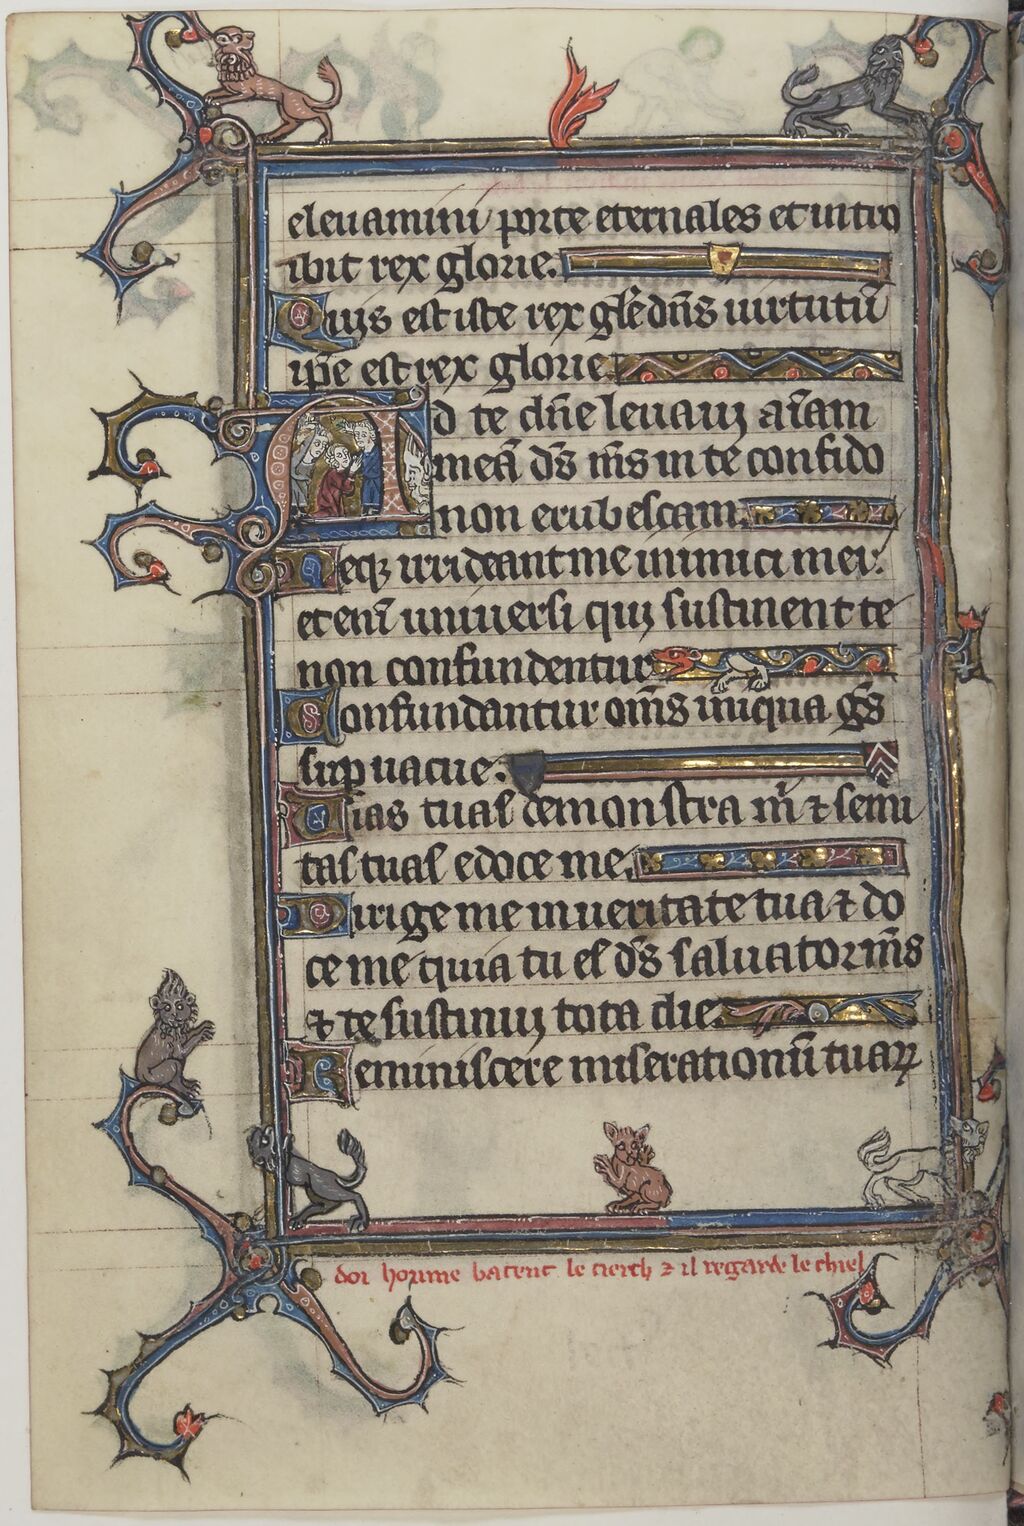 eleuamini porte eternales et intro
ibit rex glorie.
Quis est iste rex gl̄e dn̄s uirtutū
ip̄e est rex glorie
Ad te dn̄e leuaui aīam
meā ds̄ ms̄ in te confido
non erubescam.
Neqꝫ irrideant me inimici mei:
et enī uniuersi qui sustinent te
non confundentur
Confundantur om̄s iniqua gs̄
suꝑuacue.
Uias tuas demonstra m̄ ⁊ semi
tas tuas edoce me.
Dirige me in ueritate tua ⁊ do
ce me quia tu es ds̄ saluator ms̄
⁊ te sustinui tota die.
Reminiscere miserationū tuaꝝ
doi homme batent le clerch ⁊ il regarde le chiel